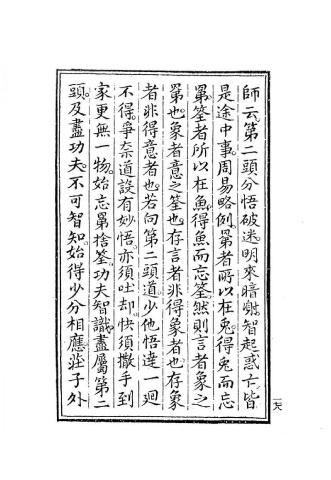 師云第二頭分悟破迷明來暗謝智起惑亡皆
是途中事周易略例蹄者所以在兔得兔而忘
蹄筌者所以在魚得魚而忘筌然則言者象之
蹄也象者意之筌也存言者非得象者也存象
者非得意者也若向第二頭道少他悟達一廻
不得爭柰道設有妙悟亦須吐却快須撒手到
家更無一物始忘蹄捨筌功夫智識盡屬第二
頭及盡功夫不可智知始得少分相應莊子外